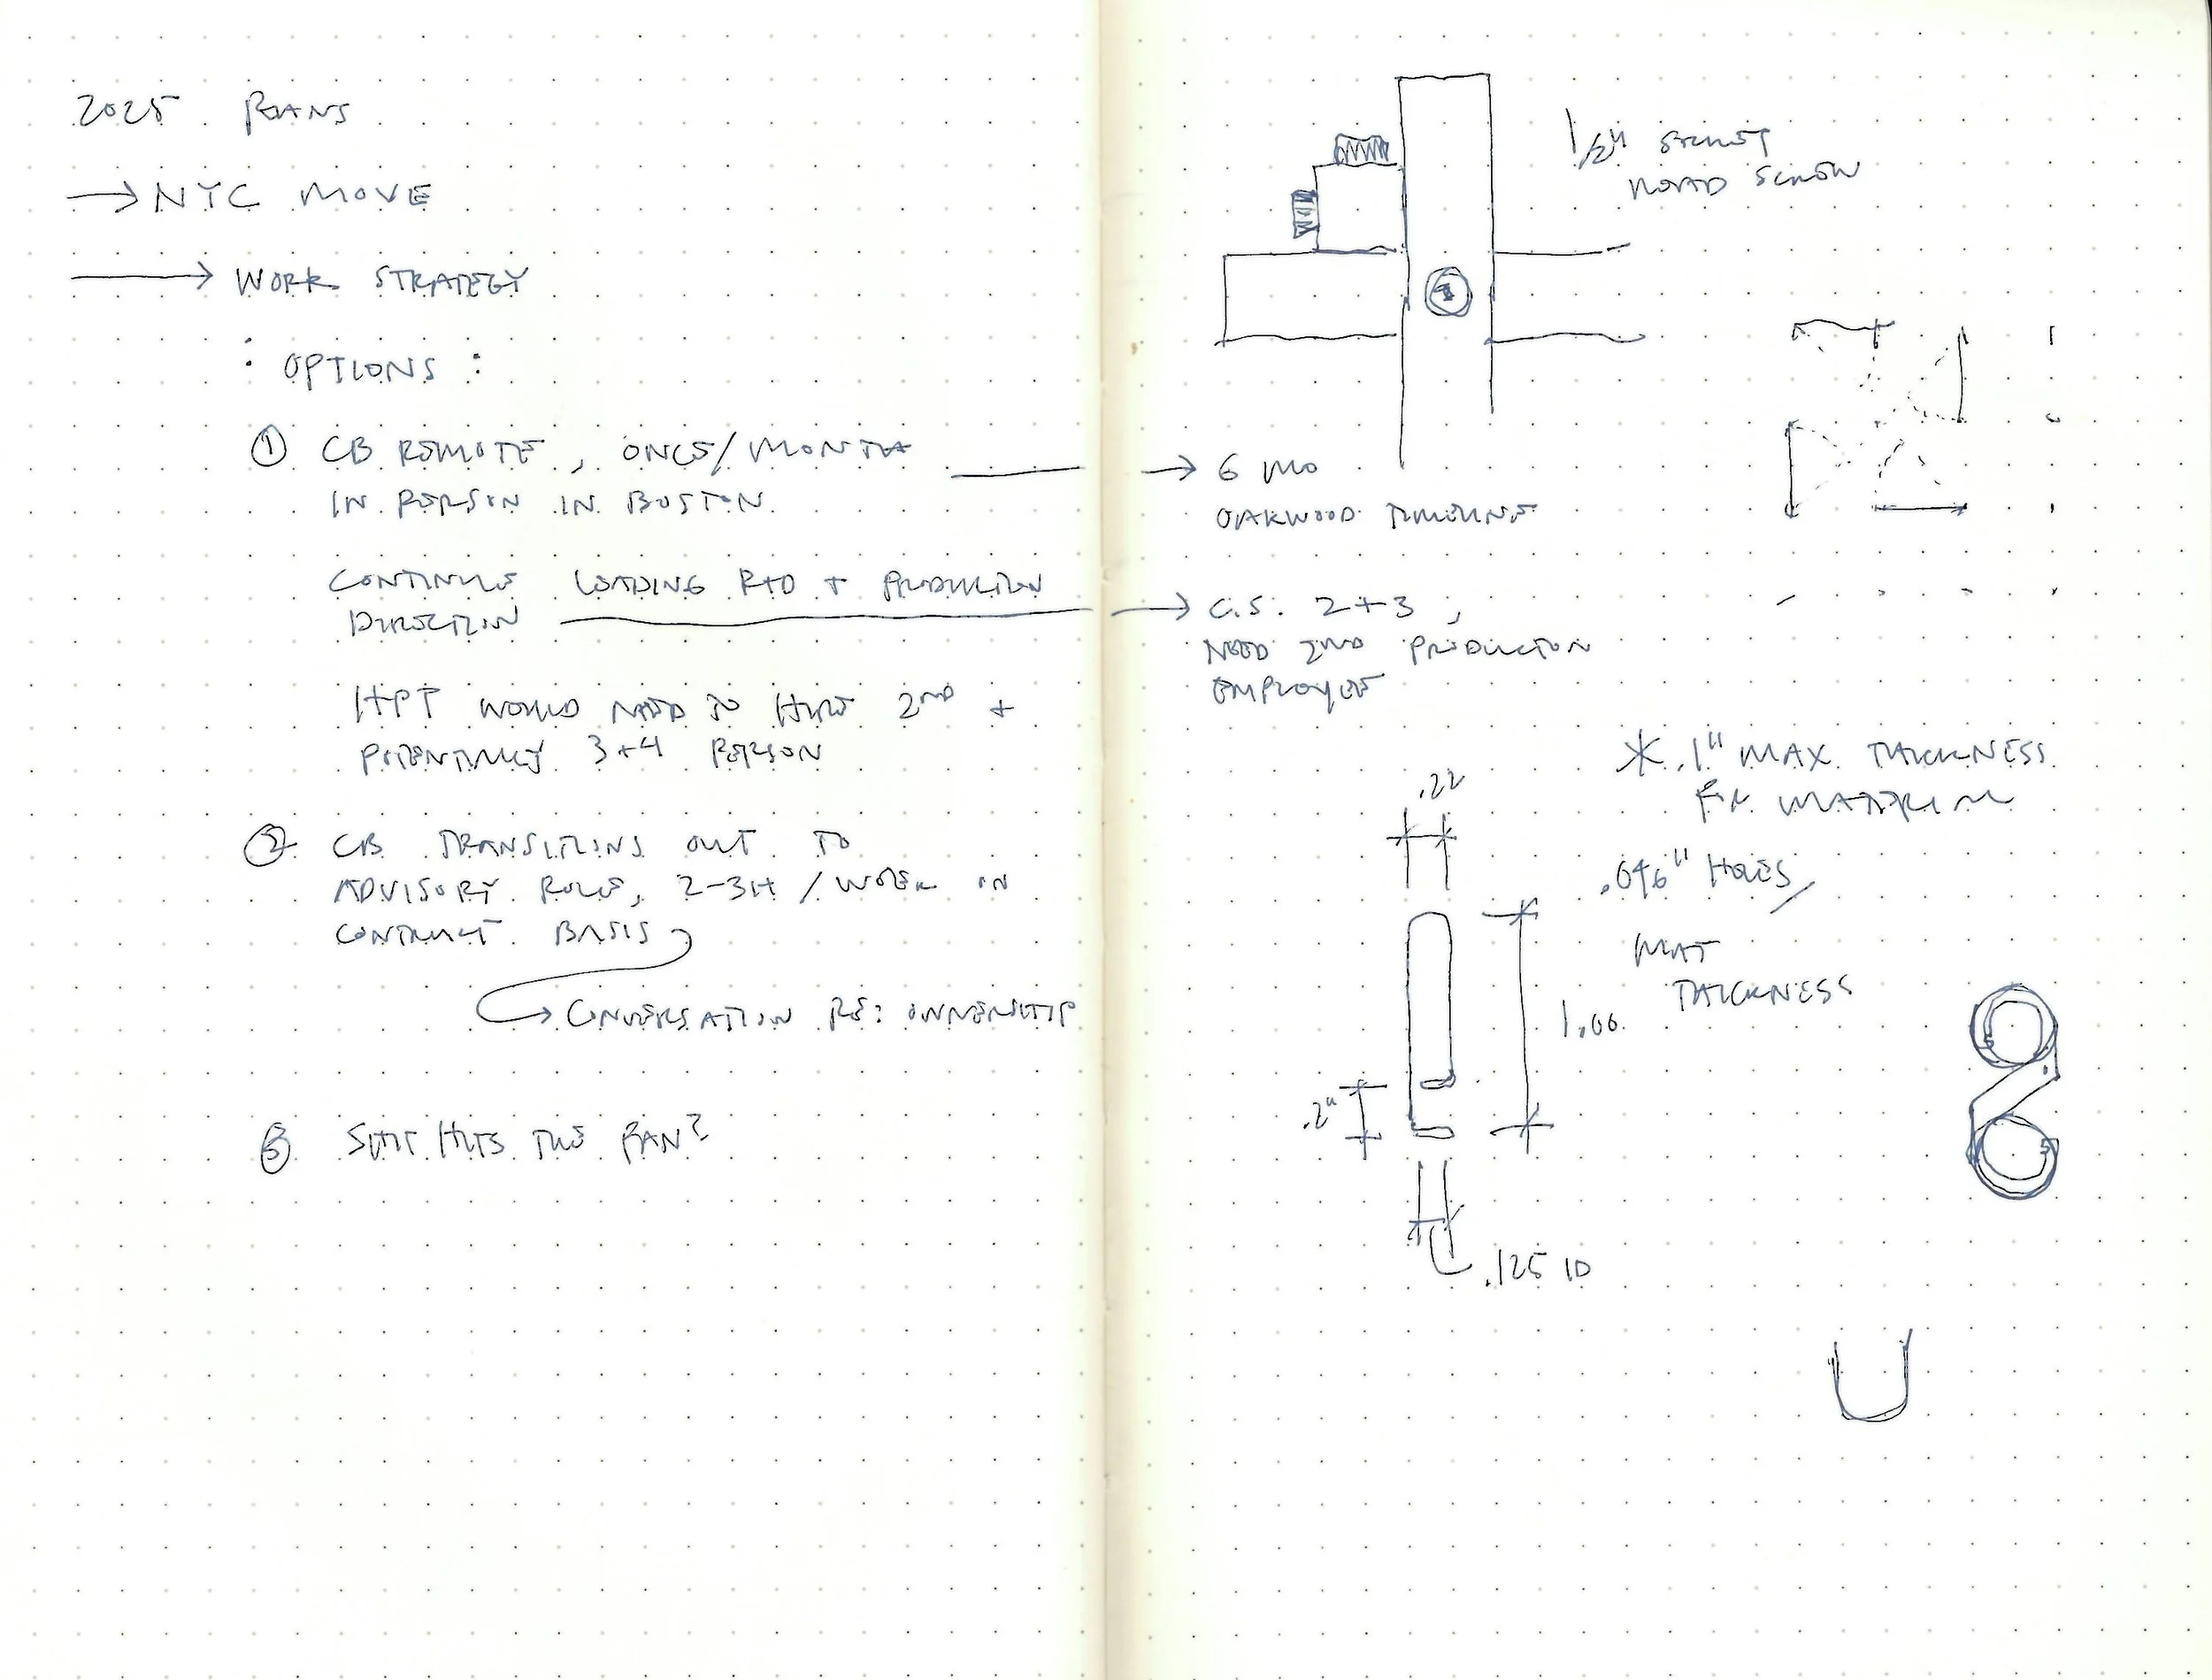 2025 PLANS
→ NYC MOVE
→ WORK STRATEGY
: OPTIONS :
① CB REMOTE, ONCE/MONTH
IN PERSON IN BOSTON
CONTINUE LEADING R+D + PRODUCTION
DIRECTION
HPT WOULD NEED TO HIRE 2ND +
POTENTIALLY 3+4 PERSON
② CB TRANSITIONS OUT TO
ADVISORY ROLE, 2-3H/WEEK ON
CONTRACT BASIS
→ CONVERSATION RE: OWNERSHIP
③ SHIT HITS THE FAN?
1/2" SOCKET
HEAD SCREW
1
→ 6 MO
OAKWOOD TIMELINE
→ C.S. 2+3,
NEED 2ND PRODUCTION
EMPLOYEE
* .1" MAX THICKNESS
FOR MATERIAL
.22
.046" HOLES/
MAT
THICKNESS
1.00
.2"
.125 ID